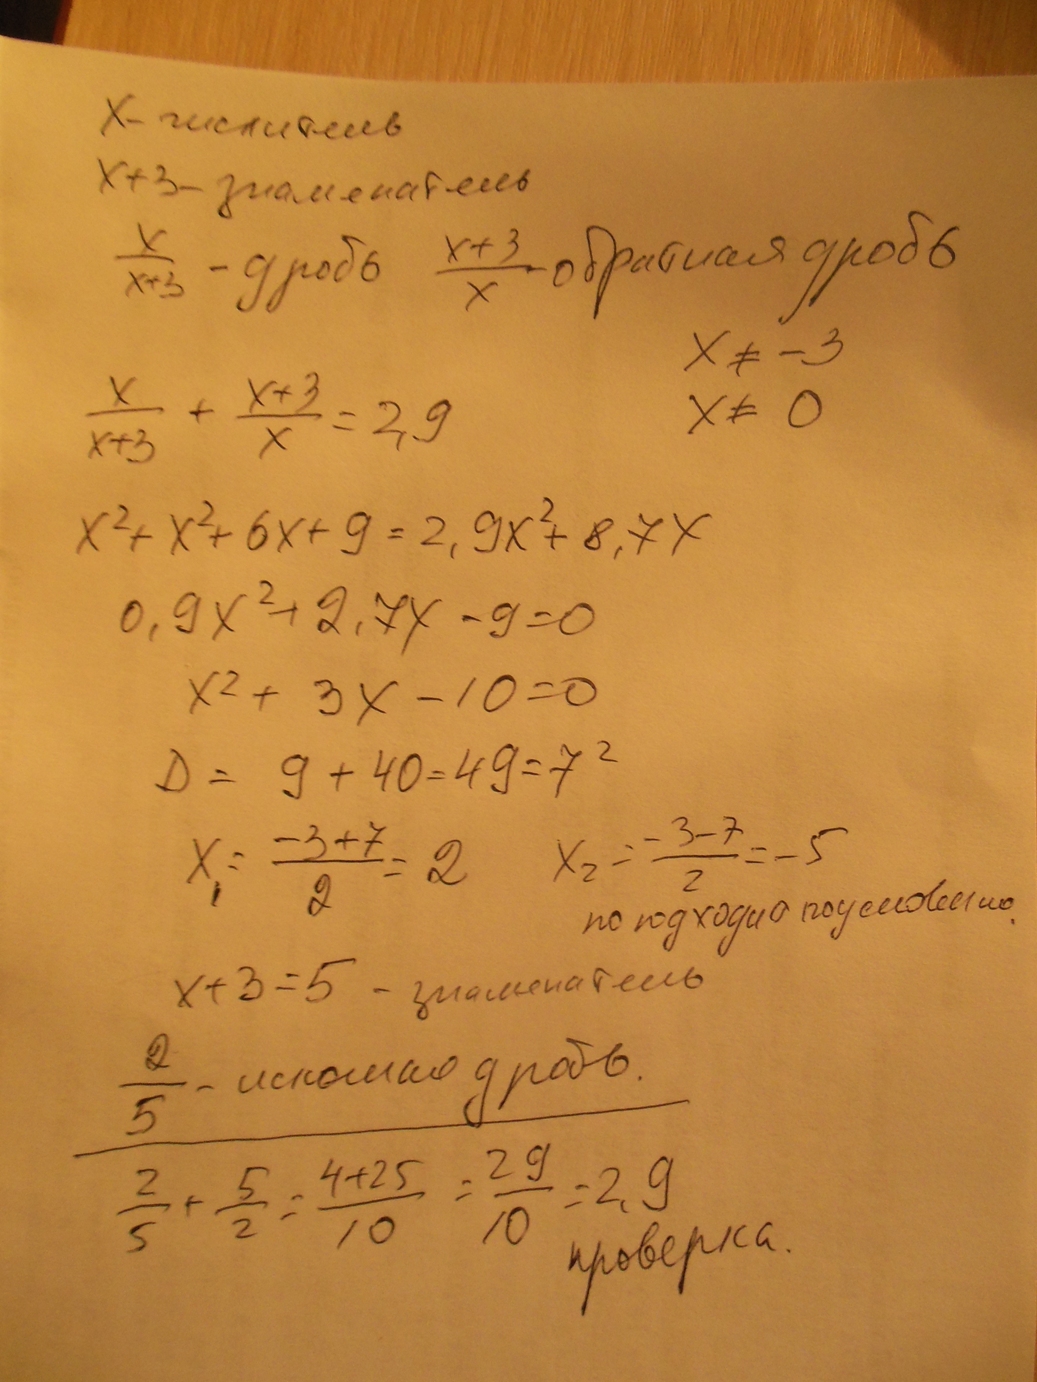 x - числитель
x+3 - знаменатель
x/(x+3) - дробь (x+3)/x - обратная дробь
x ≠ -3
x ≠ 0
x/(x+3) + (x+3)/x = 2,9
x² + x² + 6x + 9 = 2,9x² + 8,7x
0,9x² + 2,7x - 9 = 0
x² + 3x - 10 = 0
D = 9 + 40 = 49 = 7²
x₁ = (-3+7)/2 = 2 x₂ = (-3-7)/2 = -5
подходит по условию.
x+3 = 5 - знаменатель
2/5 - искомая дробь.
2/5 + 5/2 = (4+25)/10 = 29/10 = 2,9
проверка.